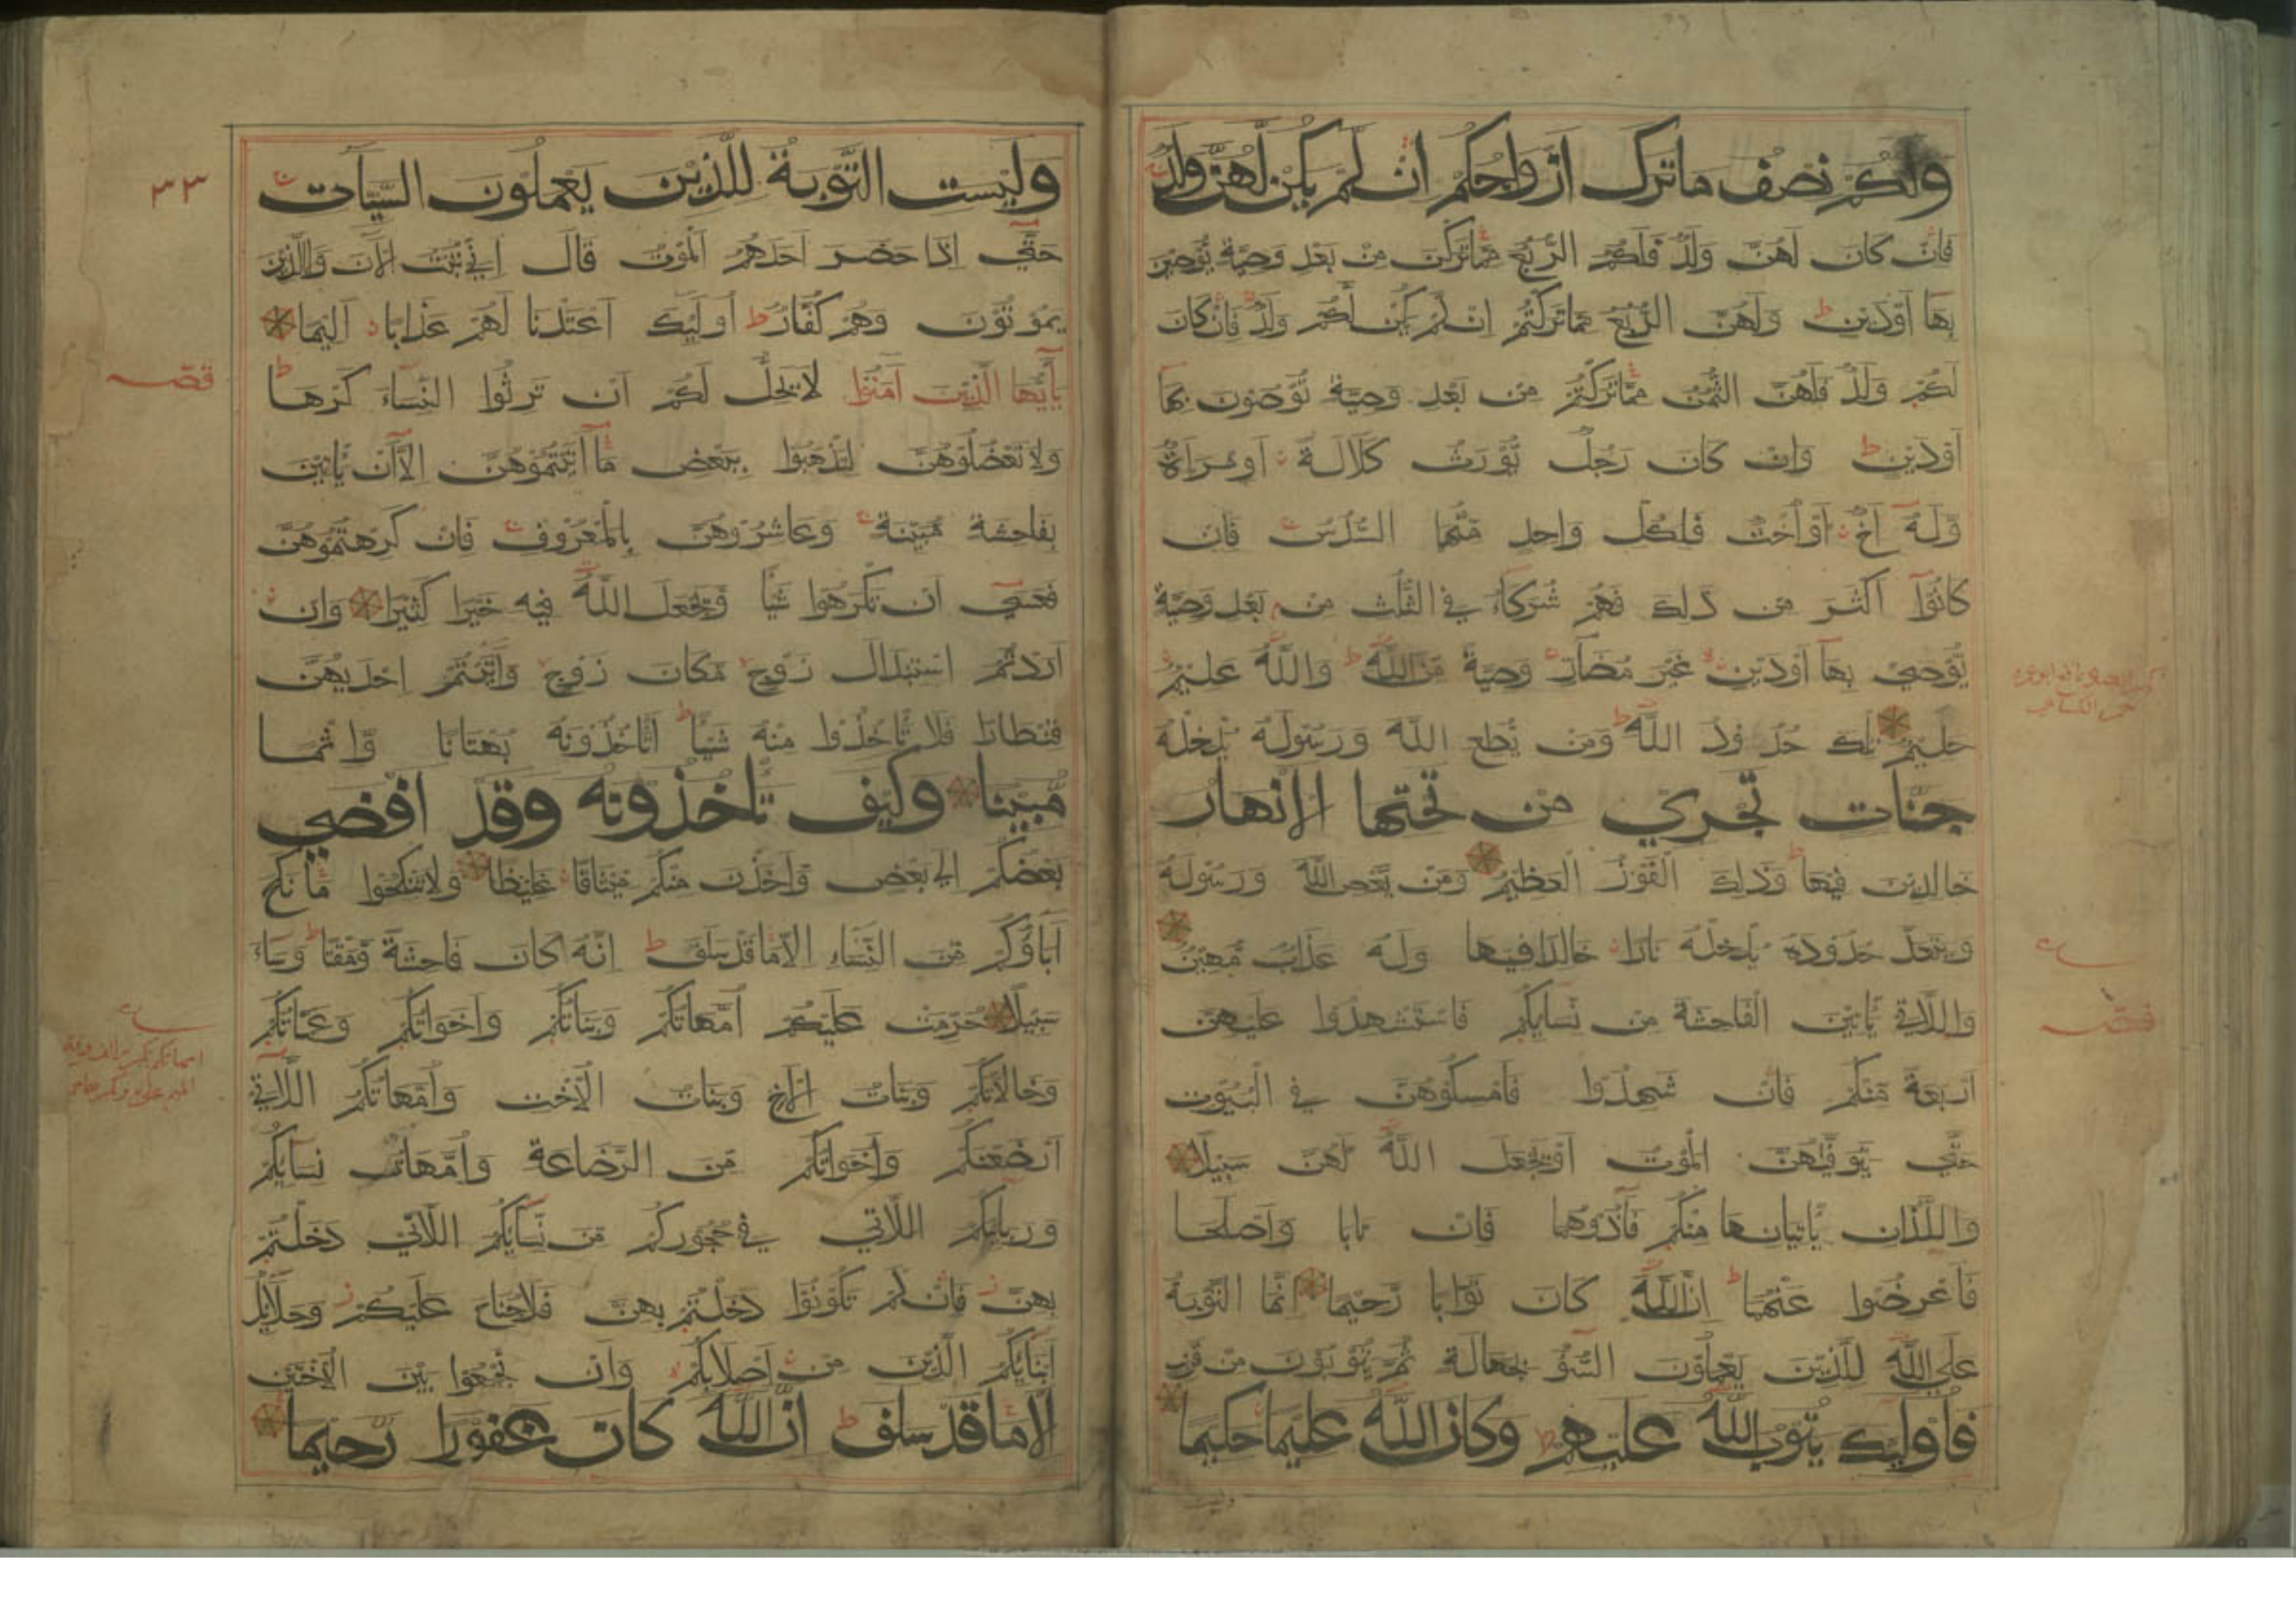 ولكم نصف ما ترك ازواجكم ان لم يكن لهن ولد
فان كان لهن ولد فلكم الربع مما تركن من بعد وصية يوصين
بها اودين ط ولهن الربع مما تركتم ان لم يكن لكم ولد فان كان
لكم ولد فلهن الثمن مما تركتم من بعد وصية توصون بها
اودين ط وان كان رجل يورث كلالة اوامراة
وله اخ اواخت فلكل واحد منهما السدس فان
كانوا اكثر من ذلك فهم شركاء في الثلث من بعد وصية
يوصى بها اودين غير مضار وصية من الله ط والله عليم
حليم تلك حدود الله ط ومن يطع الله ورسوله يدخله
جنات تجري من تحتها الانهار
خالدين فيها ط وذلك الفوز العظيم ومن يعص الله ورسوله
ويتعد حدوده يدخله نارا خالدا فيها وله عذاب مهين
واللاتي ياتين الفاحشة من نسايكم فاستشهدوا عليهن
اربعة منكم فان شهدوا فامسكوهن في البيوت
حتى يتوفيهن الموت اويجعل الله لهن سبيلا
واللذان ياتيانها منكم فآذوهما فان تابا واصلحا
فاعرضوا عنهما ط ان الله كان توابا رحيما انما التوبة
على الله للذين يعملون السوء بجهالة ثم يتوبون من قريب
فاوليك يتوب الله عليهم ط وكان الله عليما حكيما
قصه
٣٣
وليست التوبة للذين يعملون السيآت
حتى اذا حضر احدهم الموت قال اني تبت الآن ولاالذين
يموتون وهم كفار ط اوليك اعتدنا لهم عذابا اليما
يآيها الذين آمنوا لا يحل لكم ان ترثوا النساء كرها ط
ولا تعضلوهن لتذهبوا ببعض ما آتيتموهن الا ان ياتين
بفاحشة مبينة وعاشروهن بالمعروف فان كرهتموهن
فعسى ان تكرهوا شيا ويجعل الله فيه خيرا كثيرا وان
اردتم استبدال زوج مكان زوج وآتيتم احديهن
قنطارا فلا تاخذوا منه شيا ط اتاخذونه بهتانا واثما
مبينا وكيف تاخذونه وقد افضى
بعضكم الى بعض واخذن منكم ميثاقا غليظا ولا تنكحوا ما نكح
آباؤكم من النساء الا ما قد سلف ط انه كان فاحشة ومقتا ط وساء
سبيلا حرمت عليكم امهاتكم وبناتكم واخواتكم وعماتكم
وخالاتكم وبنات الاخ وبنات الاخت وامهاتكم اللاتي
ارضعنكم واخواتكم من الرضاعة وامهات نسايكم
وربايبكم اللاتي في حجوركم من نسايكم اللاتي دخلتم
بهن ز فان لم تكونوا دخلتم بهن فلا جناح عليكم ز وحلايل
ابنايكم الذين من اصلابكم وان تجمعوا بين الاختين
الا ما قد سلف ط ان الله كان غفورا رحيما
قصه